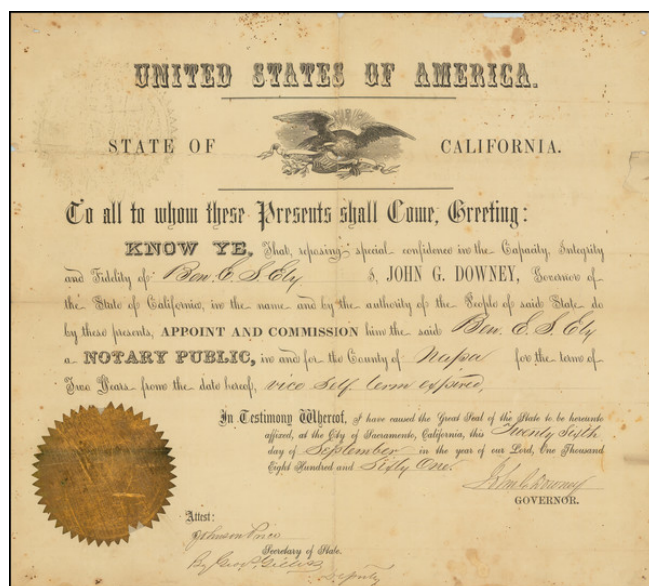 UNITED STATES OF AMERICA.
STATE OF CALIFORNIA.
To all to whom these Presents shall Come, Greeting:
KNOW YE, That, reposing special confidence in the Capacity, Integrity
and Fidelity of Ben. E. S. Ely I, JOHN G. DOWNEY, Governor of
the State of California, in the name and by the authority of the People of said State do
by these presents, APPOINT AND COMMISSION him the said Ben. E. S. Ely
a NOTARY PUBLIC, in and for the County of Napa for the term of
Two Years from the date hereof, vice self term expired,
In Testimony Whereof, I have caused the Great Seal of the State to be hereunto
affixed, at the City of Sacramento, California, this Twenty Sixth
day of September in the year of our Lord, One Thousand
Eight Hundred and Sixty One.
John G. Downey
GOVERNOR.
Attest:
Johnson Price
Secretary of State.
By Geo. Gillis
Deputy